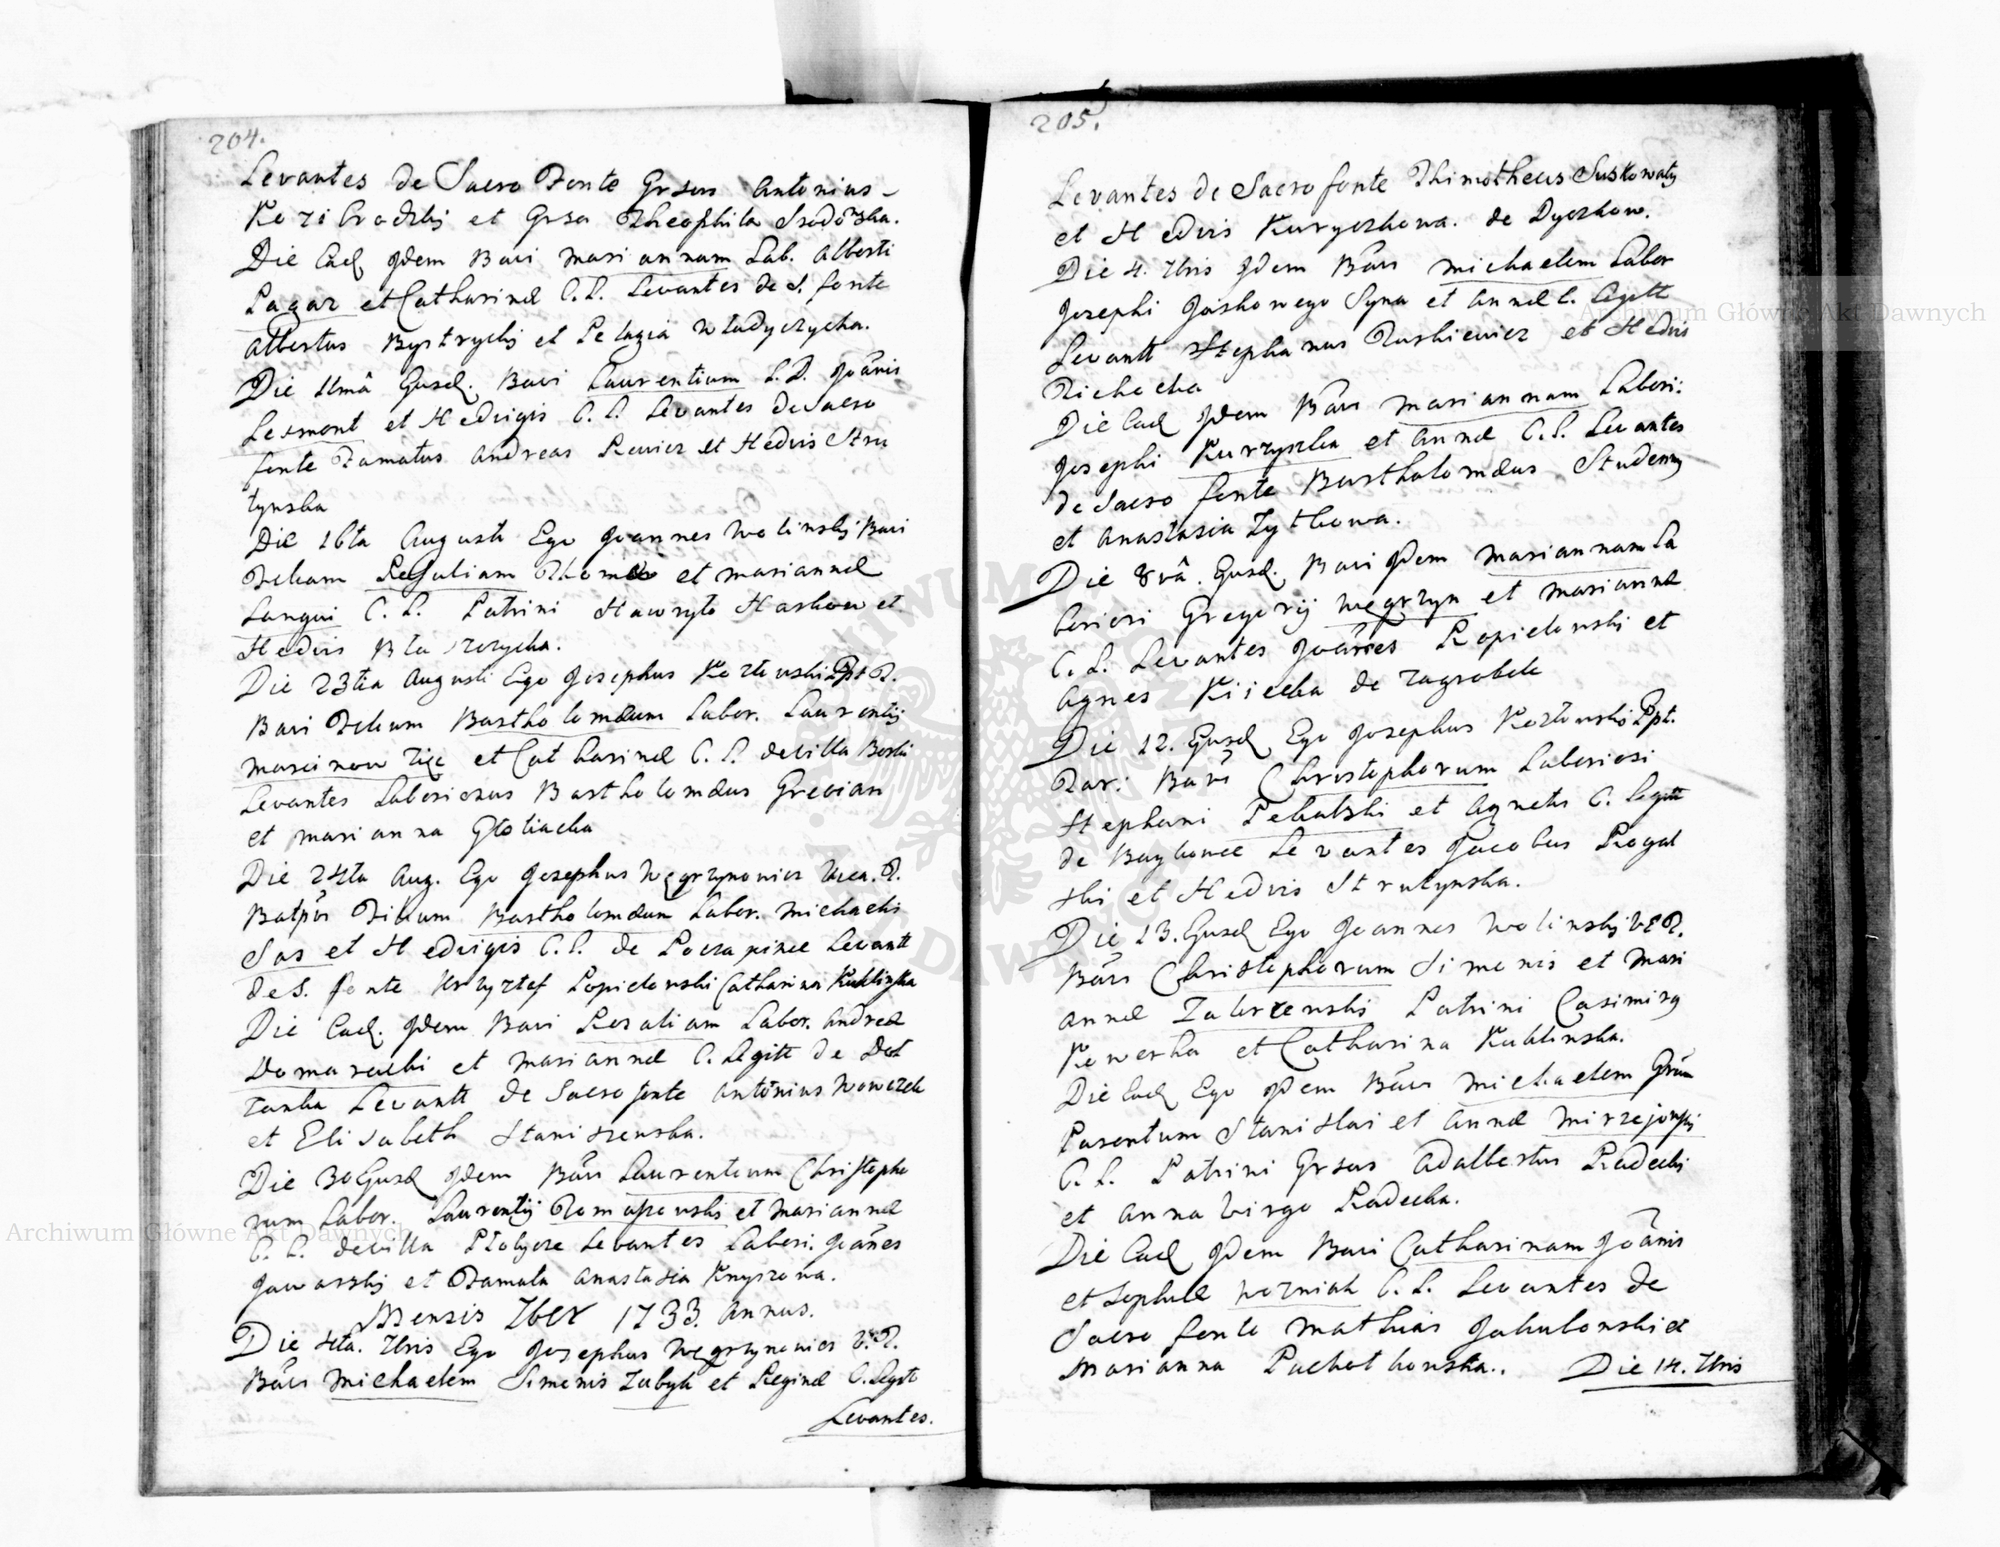 204.
Levantes de Sacro Fonte Grsus Antonius
Kozibrodzki et Grsa Theophila Srodoska.
Die Ead Idem Bavi Mariannam Lab. Alberti
Pagaz et Catharinæ C. L. Levantes de S. fonte
Albertus Bystrycki et Pelagia Wladyczycha.
Die 11mâ Eusd. Bavi Laurentium L. D. Joânis
Lesmont et Hedvigis C. L. Levantes de Sacro
fonte Famatus Andreas Rewicz et Hedvis Stru
tynska
Die 16ta Augusti Ego Joannes Wolinskj Bavi
Filiam Rosaliam Thomæ et Mariannæ
Langui C. L. Patrini Hawryło Haskow et
Hedvis Błaszczycha.
Die 23tia Augusti Ego Josephus Kozłowski Ppt R.
Bavi Filium Bartholomæum Labor. Laurentij
Marcinow Zięc et Catharinæ C. L. de Villa Borki
Levantes Laboriosus Bartholomæus Grecian
et Marianna Głotiacka
Die 24ta Aug. Ego Josephus Węgrzynowicz Vica. R.
Batpûi Filium Bartholomæum Labor. Michaelis
Sas et Hedvigis C. L. de Poczapince Levantt
de S. fonte Krzyztof Popielowski Catharina Kuklinska
Die Ead. Idem Bavi Rosaliam Labor. Andreæ
Domaracki et Mariannæ C. Legitt de Doł
zanka Levantt de Sacro fonte Antonius Nowozele
et Elisabeth Staniszewska.
Die 30 Eusd Idem Bâvi Laurentium Christopho
rum Labor. Laurentij Romanowski et Mariannæ
C. L. de Villa Płotycze Levantes Labori. Joânes
Jaworskj et Famata Anastasia Knyszowa.
Mensis 7ber 1733. Annus.
Die 4ta. 7bris Ego Josephus Węgrzynowicz V. R.
Bâvi Michaelem Simonis Zabyk et Reginæ C. Legtt
Levantes.
205.
Levantes de Sacro fonte Thimotheus Suskowaty
et Hedvis Kuryczkowa. de Dyczkow.
Die 4. 7bris Idem Bâvi Michaelem Labor
Josephi Jaskowego Syna et Annæ C. Legitt
Levantt Stephanus Ruskiewicz et Hedvis
Richocka
Die Ead Idem Bâvi Mariannam Labori:
Josephi Kurzyszka et Annæ C. L. Levantes
de Sacro fonte Bartholomæus Studenny
et Anastasia Zytkowa.
Die 8vâ. Eusd. Bavi Idem Mariannam La
boriosi Gregorij Węgrzyn et Mariannæ
C. L. Levantes Joânnes Popielowski et
Agnes Kiiecka de Zagrobele
Die 12. Eusd Ego Josephus Kozłowski Ppt.
Rar: Bavi Christophorum Laboriosi
Stephani Pekalski et Agnetis C. Legitt
de Baykowce Levantes Jacobus Rogal
ski et Hedvis Strutynska.
Die 13. Eusd Ego Joannes Wolinskj V E R.
Bâvi Christophorum Simonis et Mari
annæ Zaborzenski Patrini Casimirg
Kowerka et Catharina Kuklinska.
Die Ead Ego Idem Bâvi Michaelem Grâm
Parentum Stanislai et Annæ Mirzejowski
C. L. Patrini Grsus Adalbertus Radecki
et Anna Virgo Radecka.
Die Ead Idem Bavi Catharinam Joânis
et Sophiæ Wozniak C. L. Levantes de
Sacro fonte Mathias Jakubowski et
Marianna Pachotkowska.. Die 14. 7bris
Archiwum Główne Akt Dawnych
Archiwum Główne Akt Dawnych